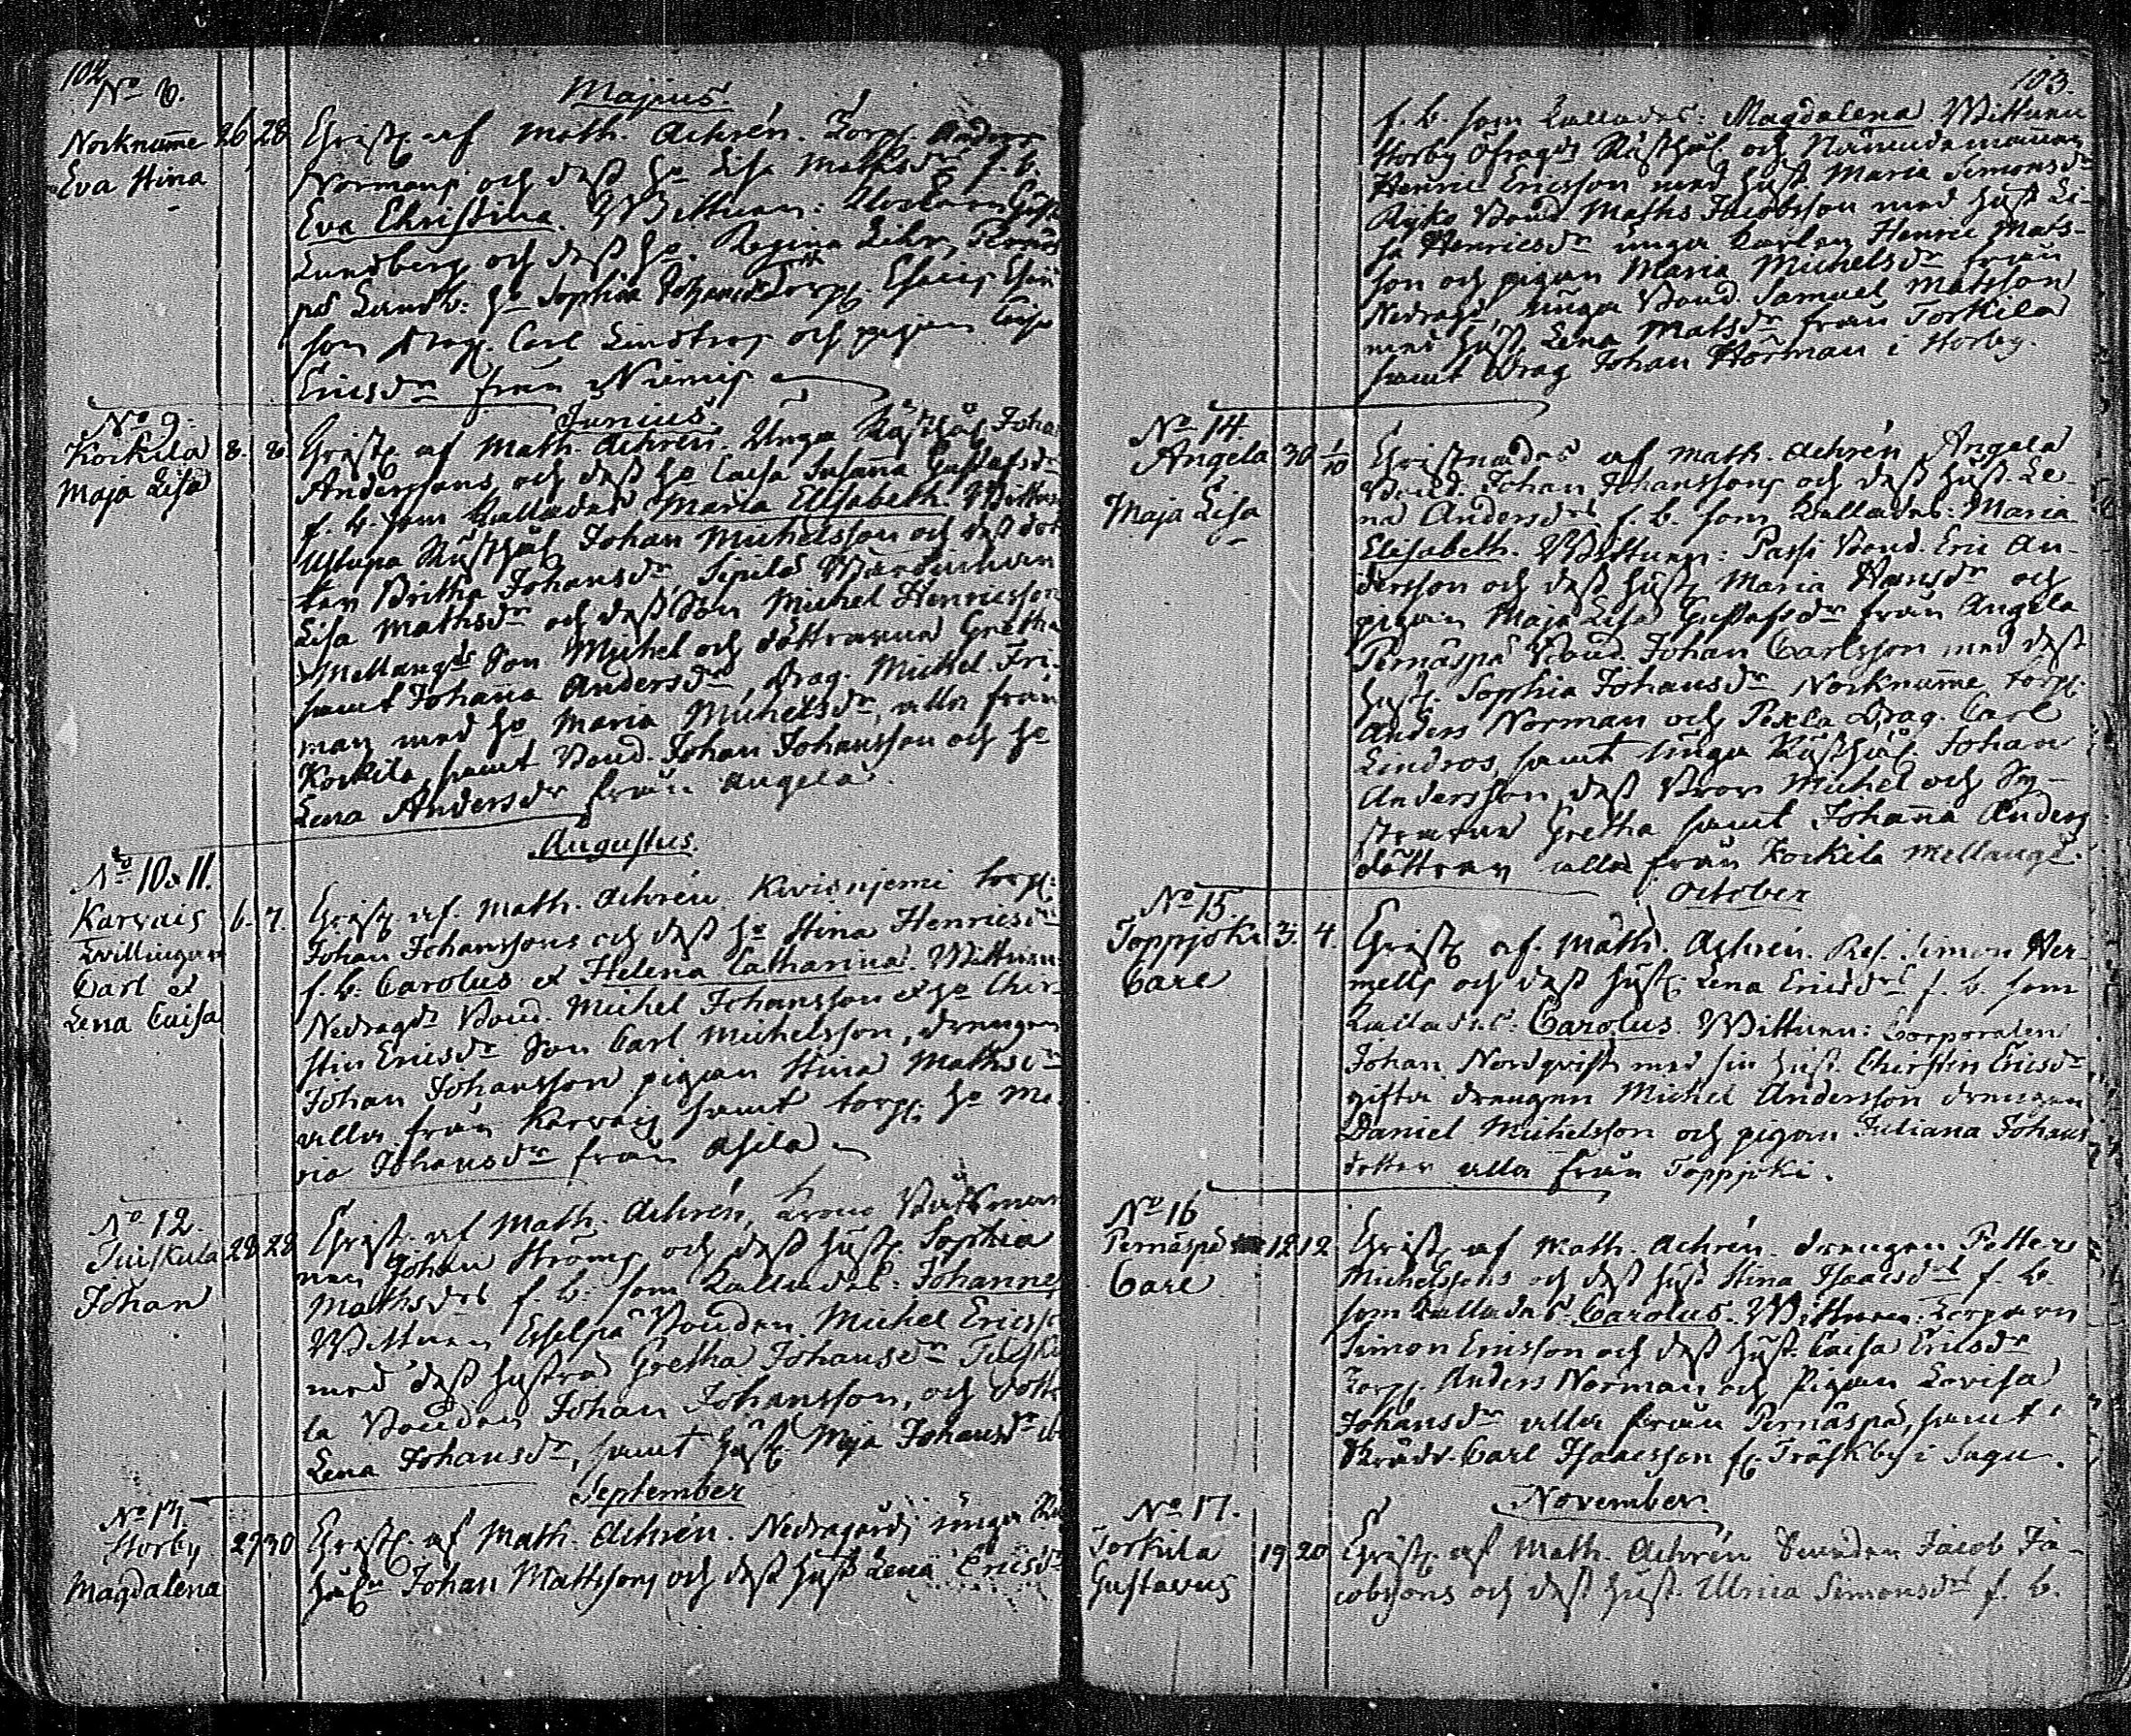 102
No 8.
Majus.
Norknumme 26 28 Christ. af Math. Achrén. Torp. Anders
Eva Stina
Normans och dess h:o Lisa Mathsdr f. b.
Eva Christina. Wittnen:
Lundberg och dess h:o Regina Pernäs
på h:o Sophia Johansdr Torp.
son Drag. Carl Lindros och pigan Caisa
Ericsdr från Niemis
No 9.
Junius
Korkila 8. 8. Christ. af Math. Achrén. Unga Rusthål. Joha
Maja Lisa
Anderssons och dess h:o Caisa Susanna Gustafsdr
f. b. som kallades Maria Elisabeth. Wittnen
Rusthål. Johan Michelsson och dess dot
ter Britha Johansdr, Sipilä
Lisa Mathsdr och dess Son Michel Henricsson
Mellangds Son Michel och döttrarna Gretha
samt Johanna Andersdr, Drag. Michel Fri-
man med h:o Maria Michelsdr, alla från
Korkila, samt Bond. Johan Johansson och h:o
Lena Andersdr från Angela.
Augustus.
No 10 & 11.
Karvais 6. 7. Christ. af Math. Achrén Kivisnjemi torp.
Twillingar
Johan Johanssons och dess h:o Stina Henricsdr
Carl et
f. b. Carolus et Helena Catharina. Wittnen
Lena Caisa
Nedragds Bond. Michel Johansson et h:o Chir-
stin Ericsdr Son Carl Michelsson, drengen
Johan Johansson pigan Stina Mathsdr
alla från Karvais samt torp. h:o Ma-
ria Johansdr från Asila
No 12.
Tuiskula 28 28 Christ. af Math. Achrén, Krono
Johan
nen Johan Ströms och dess hust. Sophia
Mathsdrs f. b. som kallades: Johannes
Wittnen Esselpä Bonden Michel Ericss
med dess hustru Gretha Johansdr Tuisku
la Bonden Johan Johansson, och dott
Lena Johansdr, samt hust. Maja Johansdr ib
September
No 13.
Storby 27 30 Christ. af Math. Achrén. Nedragårds unga Ru
Magdalena
hål:s Johan Mattssons och dess hust Lena Ericsdr
103.
f. b. som kallades: Magdalena Wittnen
Storby Öfragds Rusthål. och Nämndemannen
Henric Ericsson med hust. Maria Simonsdr
Äijkö Bond. Maths Jacobsson med hust Li-
sa Henricsdr unga karlen Henric Mats-
son och pigan Maria Michelsdr från
Nedragd, unga Bond. Samuel Matsson
med hust. Lena Matsdr från Torkila
samt Drag Johan Hörman i Storby.
No 14.
Angela 30 1/10 Christnades af Math. Achrén Angela
Maja Lisa
Bond. Johan Johanssons och dess hust. Le-
na Andersdrs f. b. som kallades: Maria
Elisabeth. Wittnen: Passi Bond. Eric An-
dersson och dess hust. Maria Hansdr och
pigan Maja Lisa Gustafsdr från Angela
Pernäspä Bond. Johan Carlsson med dess
hust. Sophia Johansdr Norknumme torp.
Anders Norman och Pexla Drag. Carl
Lindros, samt unga Rusthål. Johan
Andersson, dess Bror Michel och Sy-
strarna Gretha samt Johanna Anders
döttrar alla från Korkila Mellangd.
October
No 15.
Toppjoki 3. 4. Christ. af Math. Achrén. Res. Simon Her-
Carl
mells och dess hust. Lena Ericsdrs f. b. som
kallades: Carolus. Wittnen: Corporalen
Johan Nordqvist med sin hust. Chirstin Ericsdr
gifta drengen Michel Andersson drengen
Daniel Michelsson och pigan Juliana Johans
dotter alla från Toppjoki.
No 16
Pernäspä 12 12 Christ. af Math. Achrén. drengen Petters
Carl
Michelssons och dess hust Stina Isaacsdrs f. b.
som kallades Carolus. Wittnen: Torparen
Simon Ericsson och dess hust. Caisa Ericsdr
Torp. Anders Norman och Pigan Lovisa
Johansdr alla från Pernäspä, samt
Carl Isaacsson f. Träskby i Sagu.
November.
No 17.
Torkila 19 20 Christ. af Math. Achrén Bonden Jacob Ja-
Gustavus
cobssons och dess hust. Ulrica Simonsdrs f. b.